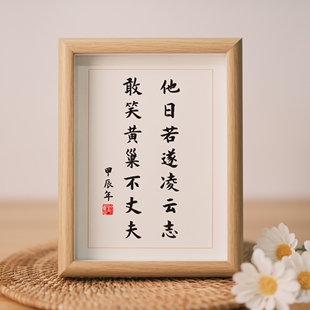 他日若遂凌云志
敢笑黄巢不丈夫
甲辰年